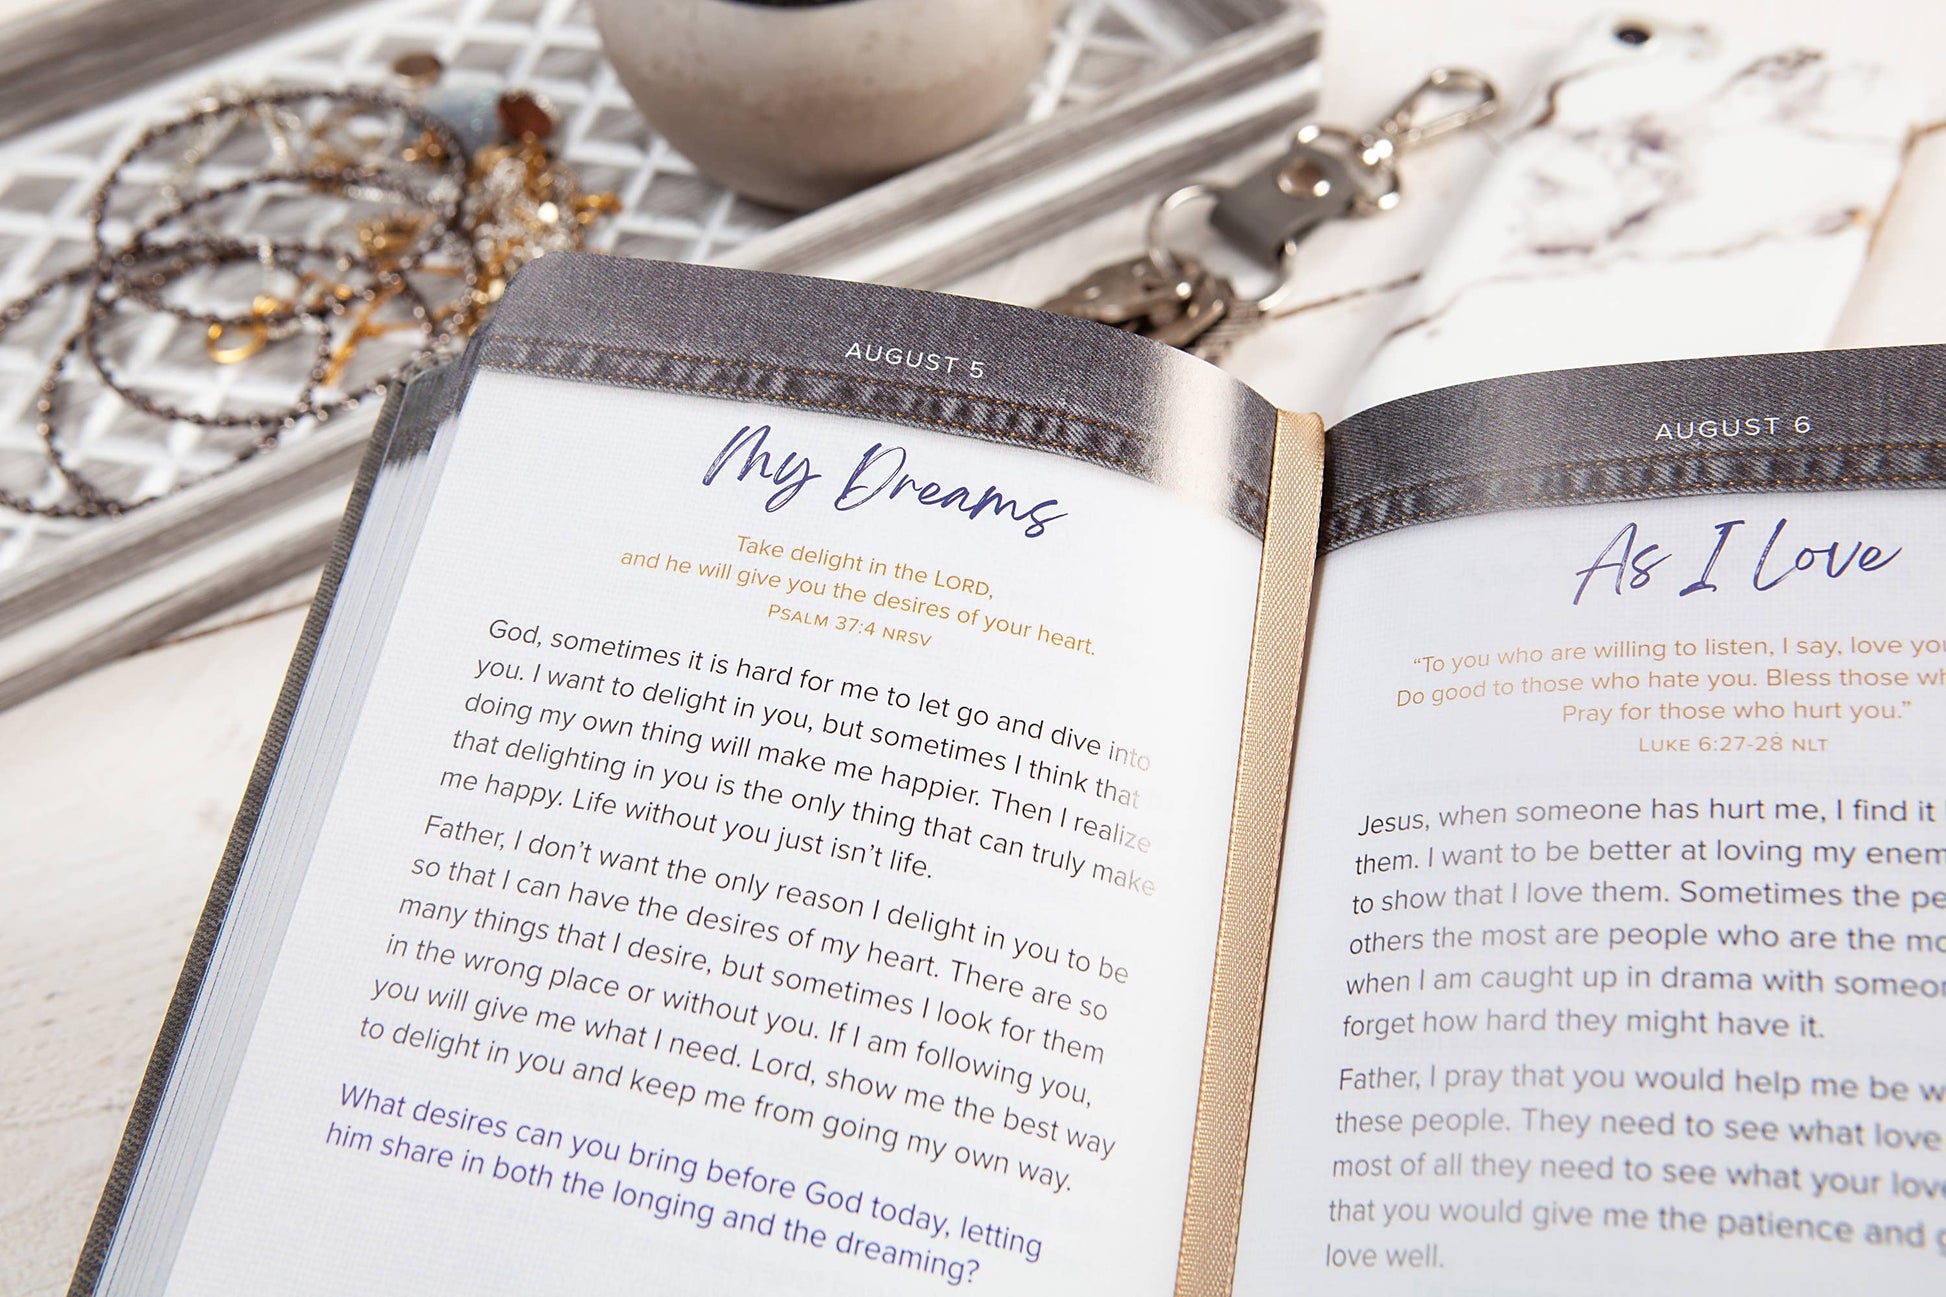 AUGUST 5
My Dreams
Take delight in the LORD,
and he will give you the desires of your heart.
PSALM 37:4 NRSV
God, sometimes it is hard for me to let go and dive into
you. I want to delight in you, but sometimes I think that
doing my own thing will make me happier. Then I realize
that delighting in you is the only thing that can truly make
me happy. Life without you just isn't life.
Father, I don't want the only reason I delight in you to be
so that I can have the desires of my heart. There are so
many things that I desire, but sometimes I look for them
in the wrong place or without you. If I am following you,
you will give me what I need. Lord, show me the best way
to delight in you and keep me from going my own way.
What desires can you bring before God today, letting
him share in both the longing and the dreaming?
AUGUST 6
As I Love
"To you who are willing to listen, I say, love
Do good to those who hate you. Bless those
Pray for those who hurt you."
LUKE 6:27-28 NLT
Jesus, when someone has hurt me, I find it
them. I want to be better at loving my
to show that I love them. Sometimes the
others the most are people who are the
when I am caught up in drama with
forget how hard they might have it.
Father, I pray that you would help me be
these people. They need to see what love
most of all they need to see what your
that you would give me the patience and
love well.